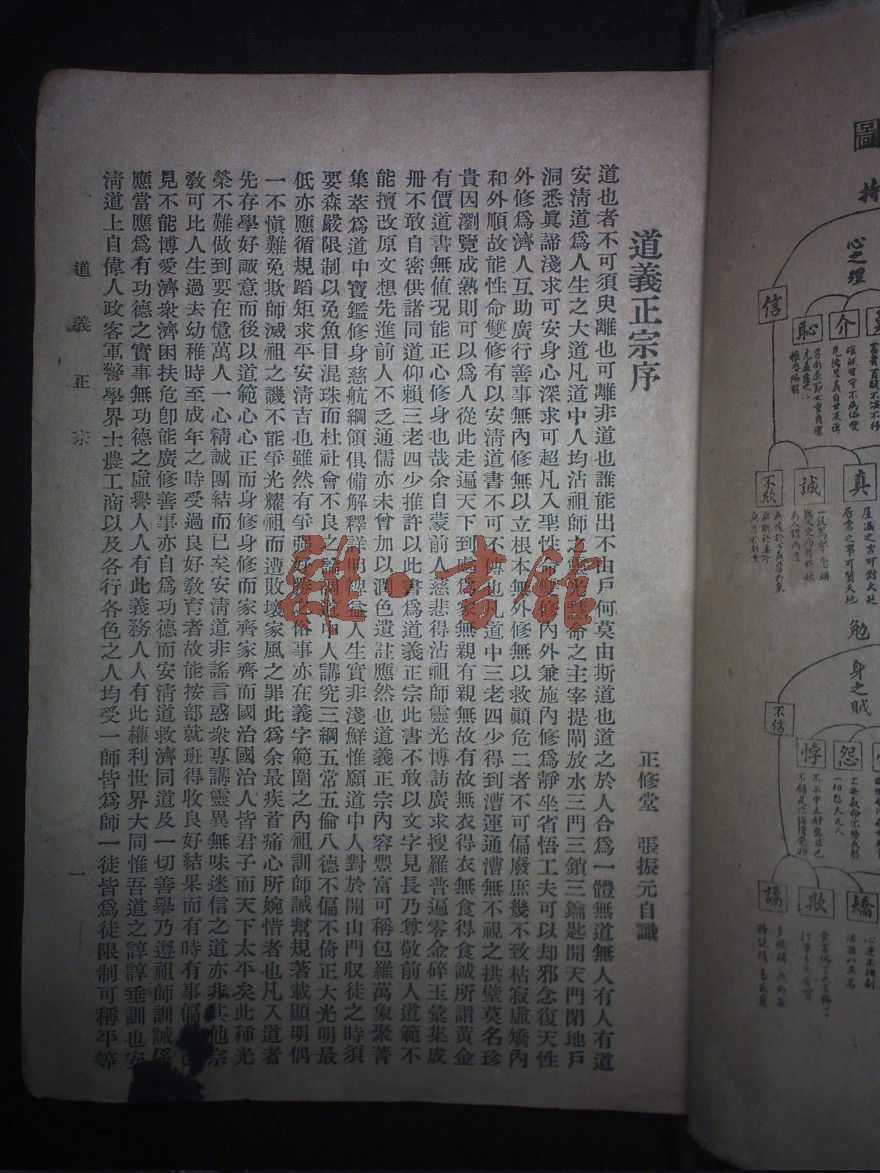 道義正宗序
正修堂　張振元自識
道也者不可須臾離也可離非道也誰能出不由戶何莫由斯道也道之於人合爲一體無道無人有人有道
安淸道爲人生之大道凡道中人均沾祖師之靈光慧命之主宰提閘放水三門三鎖三鑰匙開天門閉地戶
洞悉眞諦淺求可安身心深求可超凡入聖性命雙修內外兼施內修爲靜坐省悟工夫可以却邪念復天性
外修爲濟人互助廣行善事無內修無以立根本無外修無以救顚危二者不可偏廢庶幾不致枯寂虛矯內
和外順故能性命雙修有以安淸道書不可不傳也凡道中三老四少得到漕運通漕無不視之拱壁莫名珍
貴因瀏覽成熟則可以爲人從此走遍天下到處爲家無親有親無故有故無衣得衣無食得食誠所謂黃金
有價道書無値況能正心修身也哉余自蒙前人慈悲得沾祖師靈光博訪廣求搜羅普遍零金碎玉彙集成
册不敢自密供諸同道仰賴三老四少推許以此書爲道義正宗此書不敢以文字見長乃尊敬前人道範不
能擅改原文想先進前人不乏通儒亦未曾加以潤色遺註應然也道義正宗內容豐富可稱包羅萬象聚菁
集萃爲道中寶鑑修身慈航綱領俱備解釋詳明裨益人生實非淺鮮惟願道中人對於開山門收徒之時須
要森嚴限制以免魚目混珠而杜社會不良之誚謂道中人講究三綱五常五倫八德不偏不倚正大光明最
低亦應循規蹈矩求平安淸吉也雖然有爭强好勝之俗事亦在義字範圍之內祖訓師誡幫規著載顯明偶
一不愼難免欺師滅祖之譏不能爭光耀祖而遭敗壞家風之罪此爲余最疾首痛心所婉惜者也凡入道者
先存學好誠意而後以道範心心正而身修身修而家齊家齊而國治國治人皆君子而天下太平矣此種光
榮不難做到要在億萬人一心精誠團結而已矣安淸道非謠言惑衆專講靈異無味迷信之道亦非其他宗
敎可比人生過去幼稚時至成年之時受過良好敎育者故能按部就班得收良好結果而有時有事偏
見不能博愛濟衆濟困扶危卽能廣修善事亦自爲功德而安淸道救濟同道及一切善舉乃遵祖師訓誡係
應當應爲有功德之實事無功德之虛譽人人有此義務人人有此權利世界大同惟吾道之諄諄垂訓也安
淸道上自偉人政客軍警學界士農工商以及各行各色之人均受一師皆爲師一徒皆爲徒限制可稱平等
道義正宗
一
圖
持
心之理
信
恥
介
不欺
誠
眞
屋漏之言可對大廷
居常之事可質天地
勉
身之賊
不信
悖
怨
欺
矯